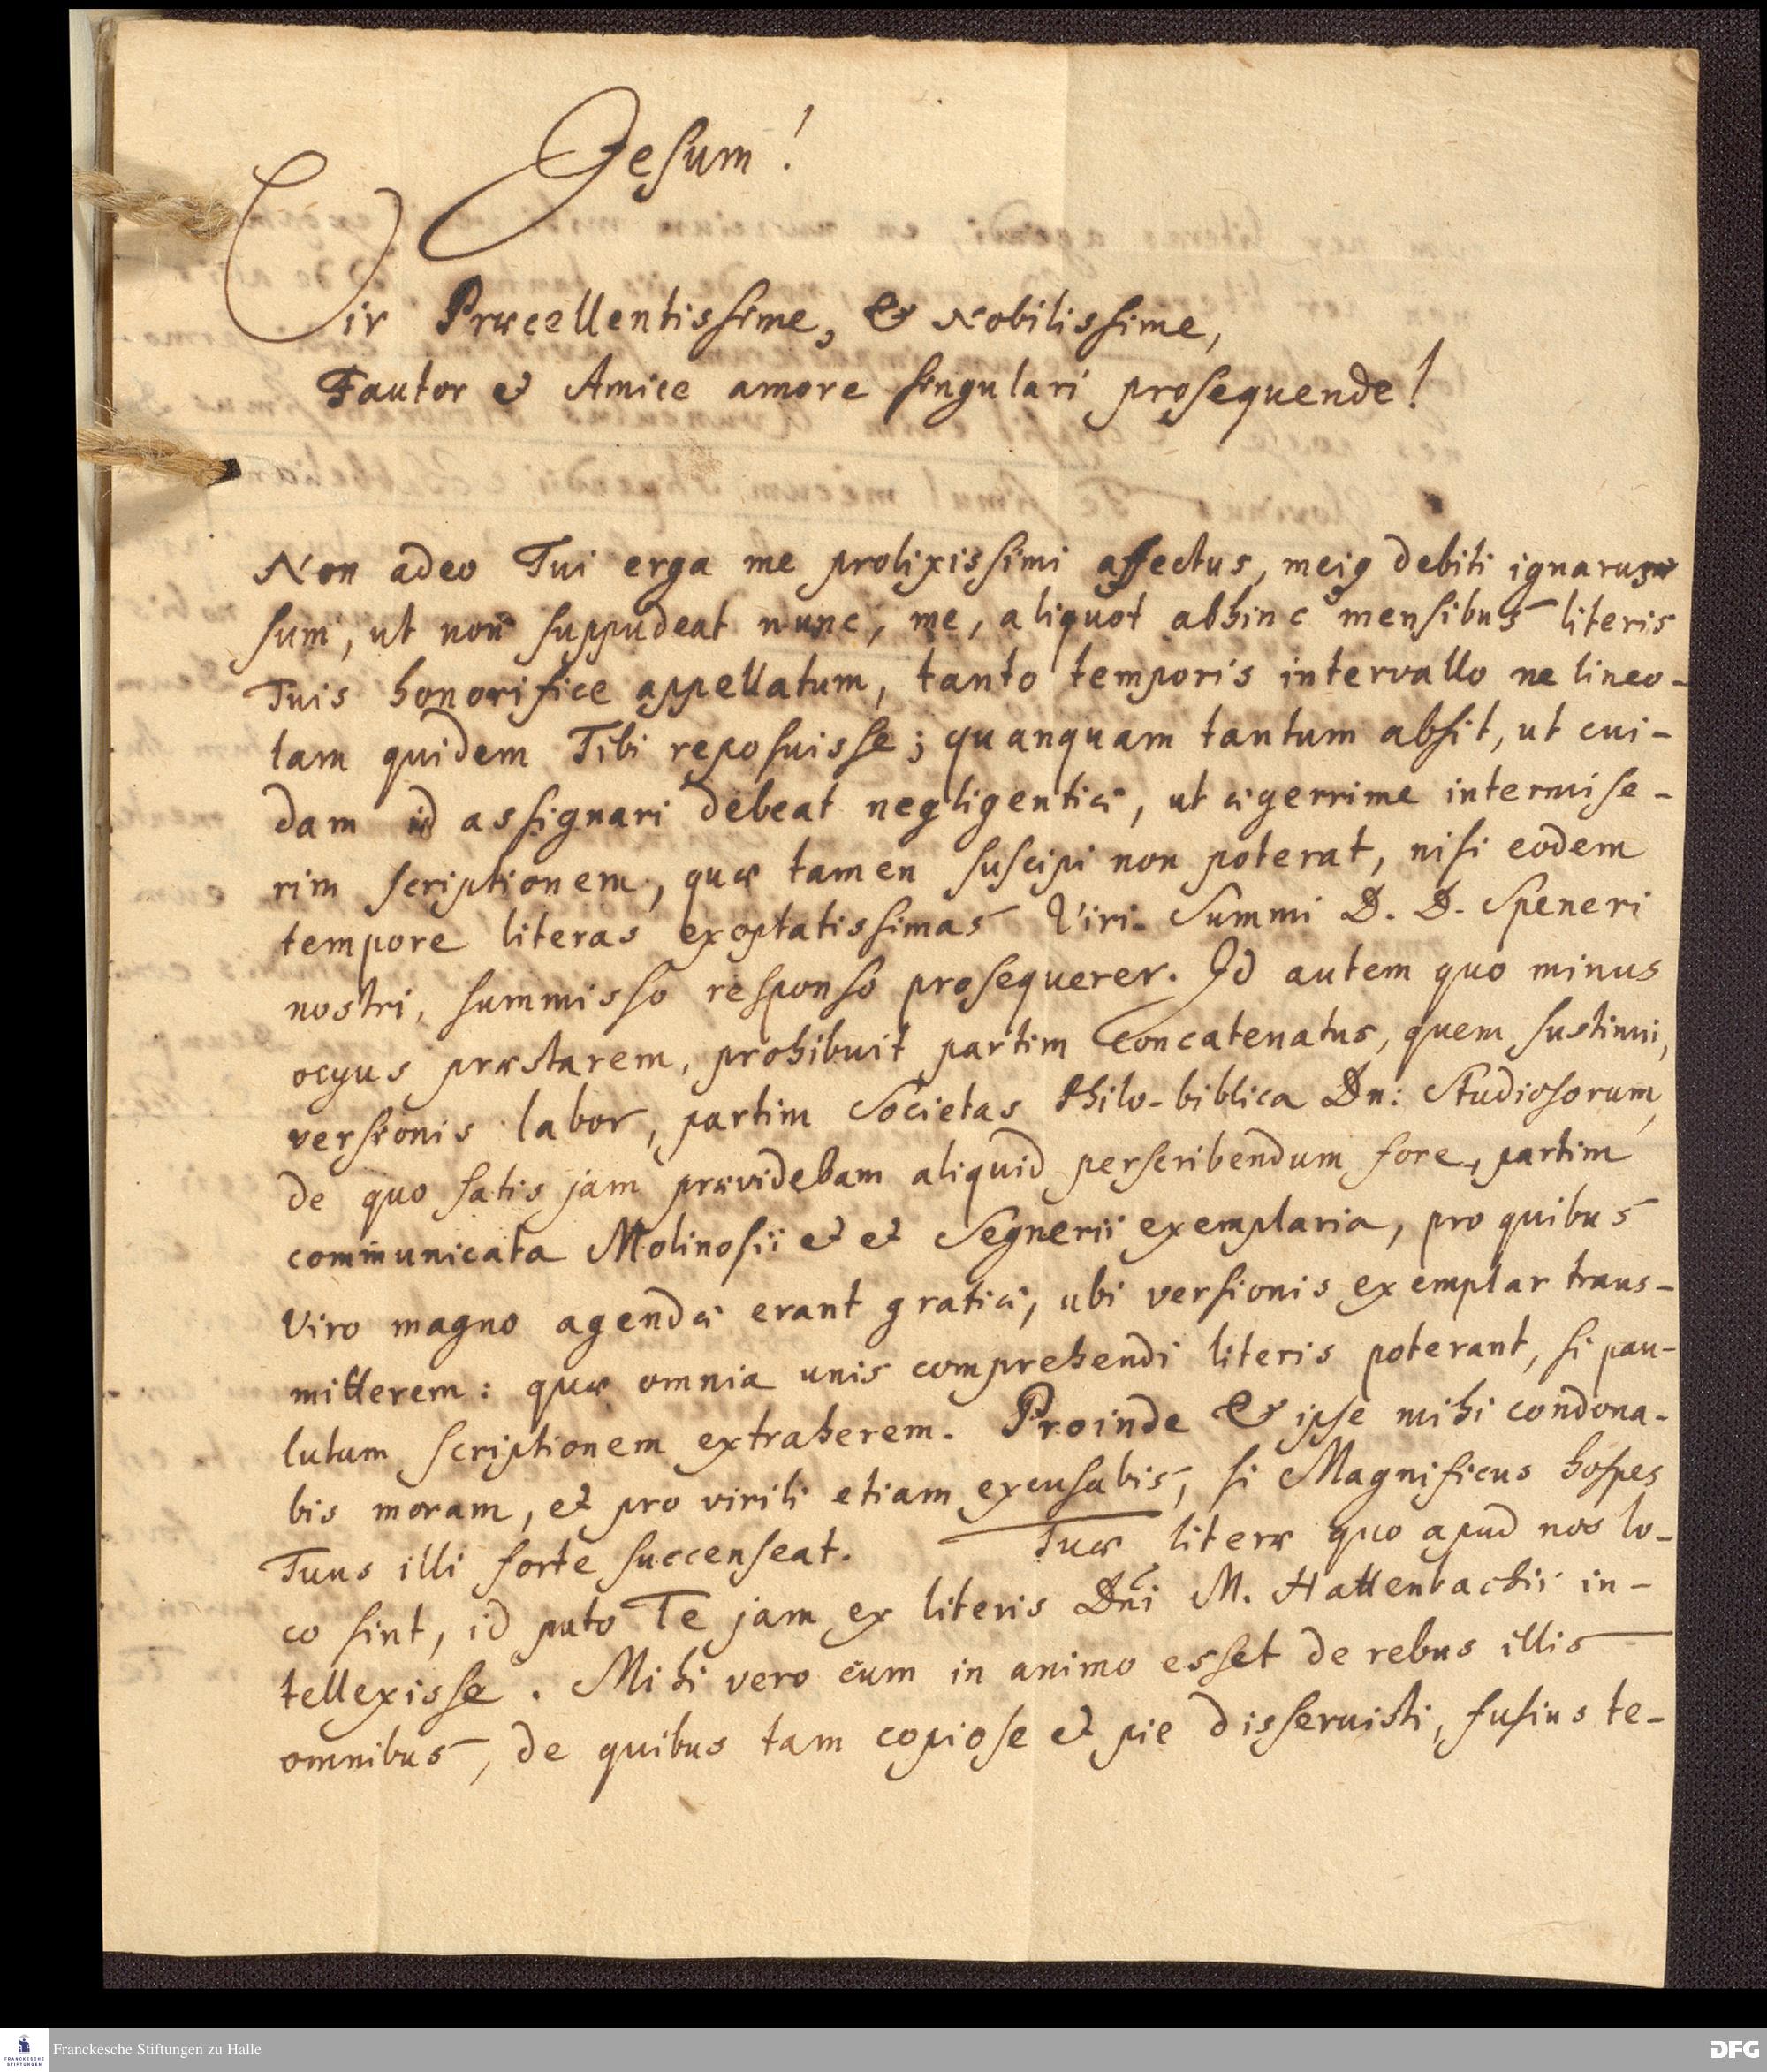 Jesum!
Vir Præcellentissime, & Nobilissime,
Fautor & Amice amore singulari prosequende!
Non adeo Tui erga me prolixissimi affectus, meiq debiti ignarus
sum, ut non suppudeat nunc, me, aliquot abhinc mensibus literis
Tuis honorifice appellatum, tanto temporis intervallo ne lineo-
lam quidem Tibi reposuisse; quanquam tantum absit, ut cui-
dam id assignari debeat negligentiæ, ut ægerrime intermise-
rim scriptionem, quæ tamen suscipi non poterat, nisi eodem
tempore literas exoptatissimas Viri Summi D. D. Speneri
nostri, summisso responso prosequerer. Id autem quo minus
ocyus præstarem, prohibuit partim Concatenatus, quem sustinui,
versionis labor, partim Societas Philo-biblica Dn: Studiosorum,
de quo satis jam prævidebam aliquid perscribendum fore, partim
communicata Molinosii & & Segnerii exemplaria, pro quibus
Viro magno agendæ erant gratiæ, ubi versionis exemplar trans-
mitterem: quæ omnia unis comprehendi literis poterant, si pau-
lulum scriptionem extraherem. Proinde & ipse mihi condona-
bis moram, et pro virili etiam excusabis, si Magnificus hospes
Tuus illi forte succenseat. Tuæ literæ quo apud nos lo-
co sint, id puto Te jam ex literis Dni M. Hattenbachii in-
tellexisse. Mihi vero cum in animo esset de rebus illis
omnibus, de quibus tam copiose et pie disseruisti, fusius te-
Franckesche Stiftungen zu Halle
FRANCKESCHE
STIFTUNGEN
DFG